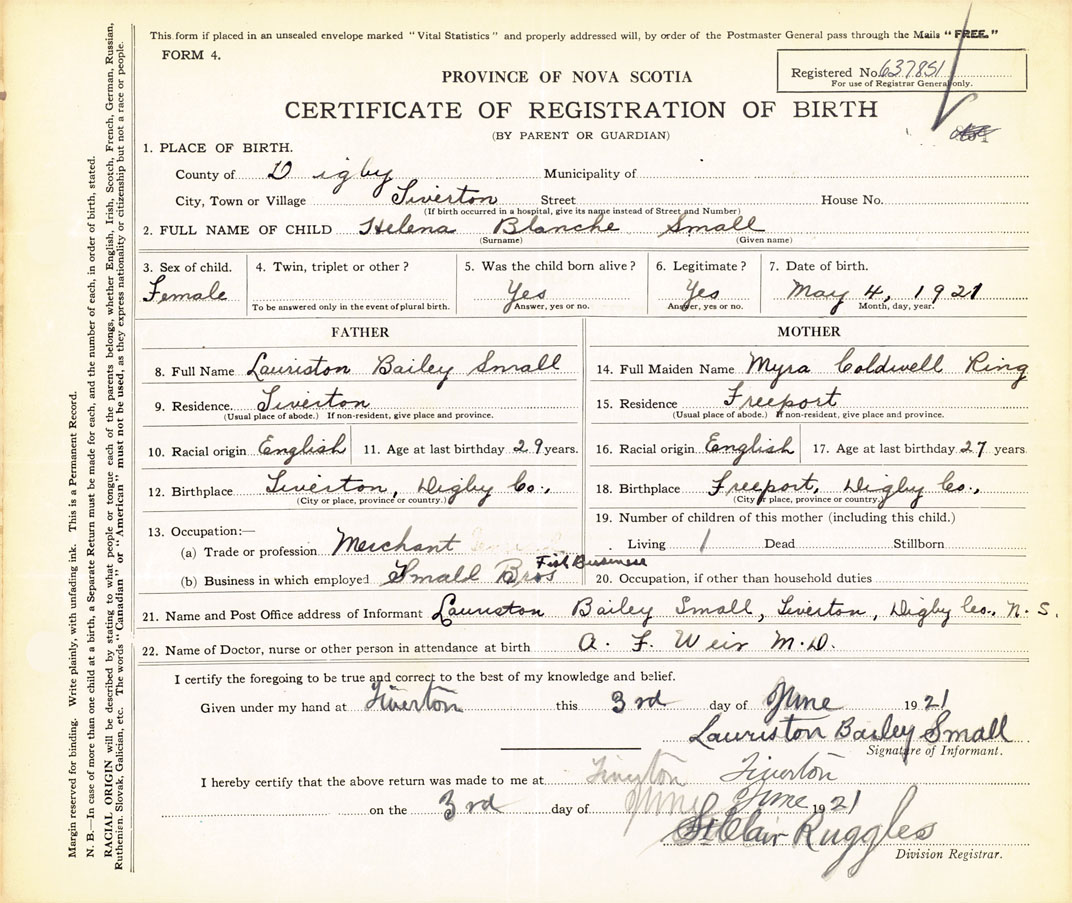 This form if placed in an unsealed envelope marked "Vital Statistics" and properly addressed will, by order of the Postmaster General pass through the Mails "FREE."
FORM 4.
PROVINCE OF NOVA SCOTIA
Registered No. 637851
For use of Registrar General only.
CERTIFICATE OF REGISTRATION OF BIRTH
(BY PARENT OR GUARDIAN)
1. PLACE OF BIRTH.
County of Digby Municipality of
City, Town or Village Tiverton Street House No.
(If birth occurred in a hospital, give its name instead of Street and Number)
2. FULL NAME OF CHILD Helena Blanche Small
(Surname) (Given name)
3. Sex of child. 4. Twin, triplet or other? 5. Was the child born alive? 6. Legitimate? 7. Date of birth.
Female Yes Yes May 4, 1921
To be answered only in the event of plural birth. Answer, yes or no. Answer, yes or no. Month, day, year.
FATHER MOTHER
8. Full Name Lauriston Bailey Small 14. Full Maiden Name Myra Coldwell Ring
9. Residence. Tiverton 15. Residence Freeport
(Usual place of abode.) If non-resident, give place and province. (Usual place of abode.) If non-resident, give place and province.
10. Racial origin English 11. Age at last birthday 29 years. 16. Racial origin English 17. Age at last birthday 27 years
12. Birthplace Tiverton, Digby Co., 18. Birthplace Freeport, Digby Co.,
(City or place, province or country.) (City or place, province or country.)
13. Occupation:— 19. Number of children of this mother (including this child.)
(a) Trade or profession Merchant Living 1 Dead Stillborn
(b) Business in which employed Small Bros Fish Business 20. Occupation, if other than household duties
21. Name and Post Office address of Informant Lauriston Bailey Small, Tiverton, Digby Co., N. S.
22. Name of Doctor, nurse or other person in attendance at birth A. F. Weir M.D.
I certify the foregoing to be true and correct to the best of my knowledge and belief.
Given under my hand at Tiverton this 3rd day of June 1921
Lauriston Bailey Small
Signature of Informant.
I hereby certify that the above return was made to me at Tiverton Tiverton
on the 3rd day of June June 1921
St Clair Ruggles
Division Registrar.
Margin reserved for binding. Write plainly, with unfading ink. This is a Permanent Record.
N. B.—In case of more than one child at a birth, a Separate Return must be made for each, and the number of each, in order of birth, stated.
RACIAL ORIGIN will be described by stating to what people or tongue each of the parents belongs, whether English, Irish, Scotch, French, German, Russian,
Ruthenian, Slovak, Galician, etc. The words "Canadian" or "American" must not be used, as they express nationality or citizenship but not a race or people.